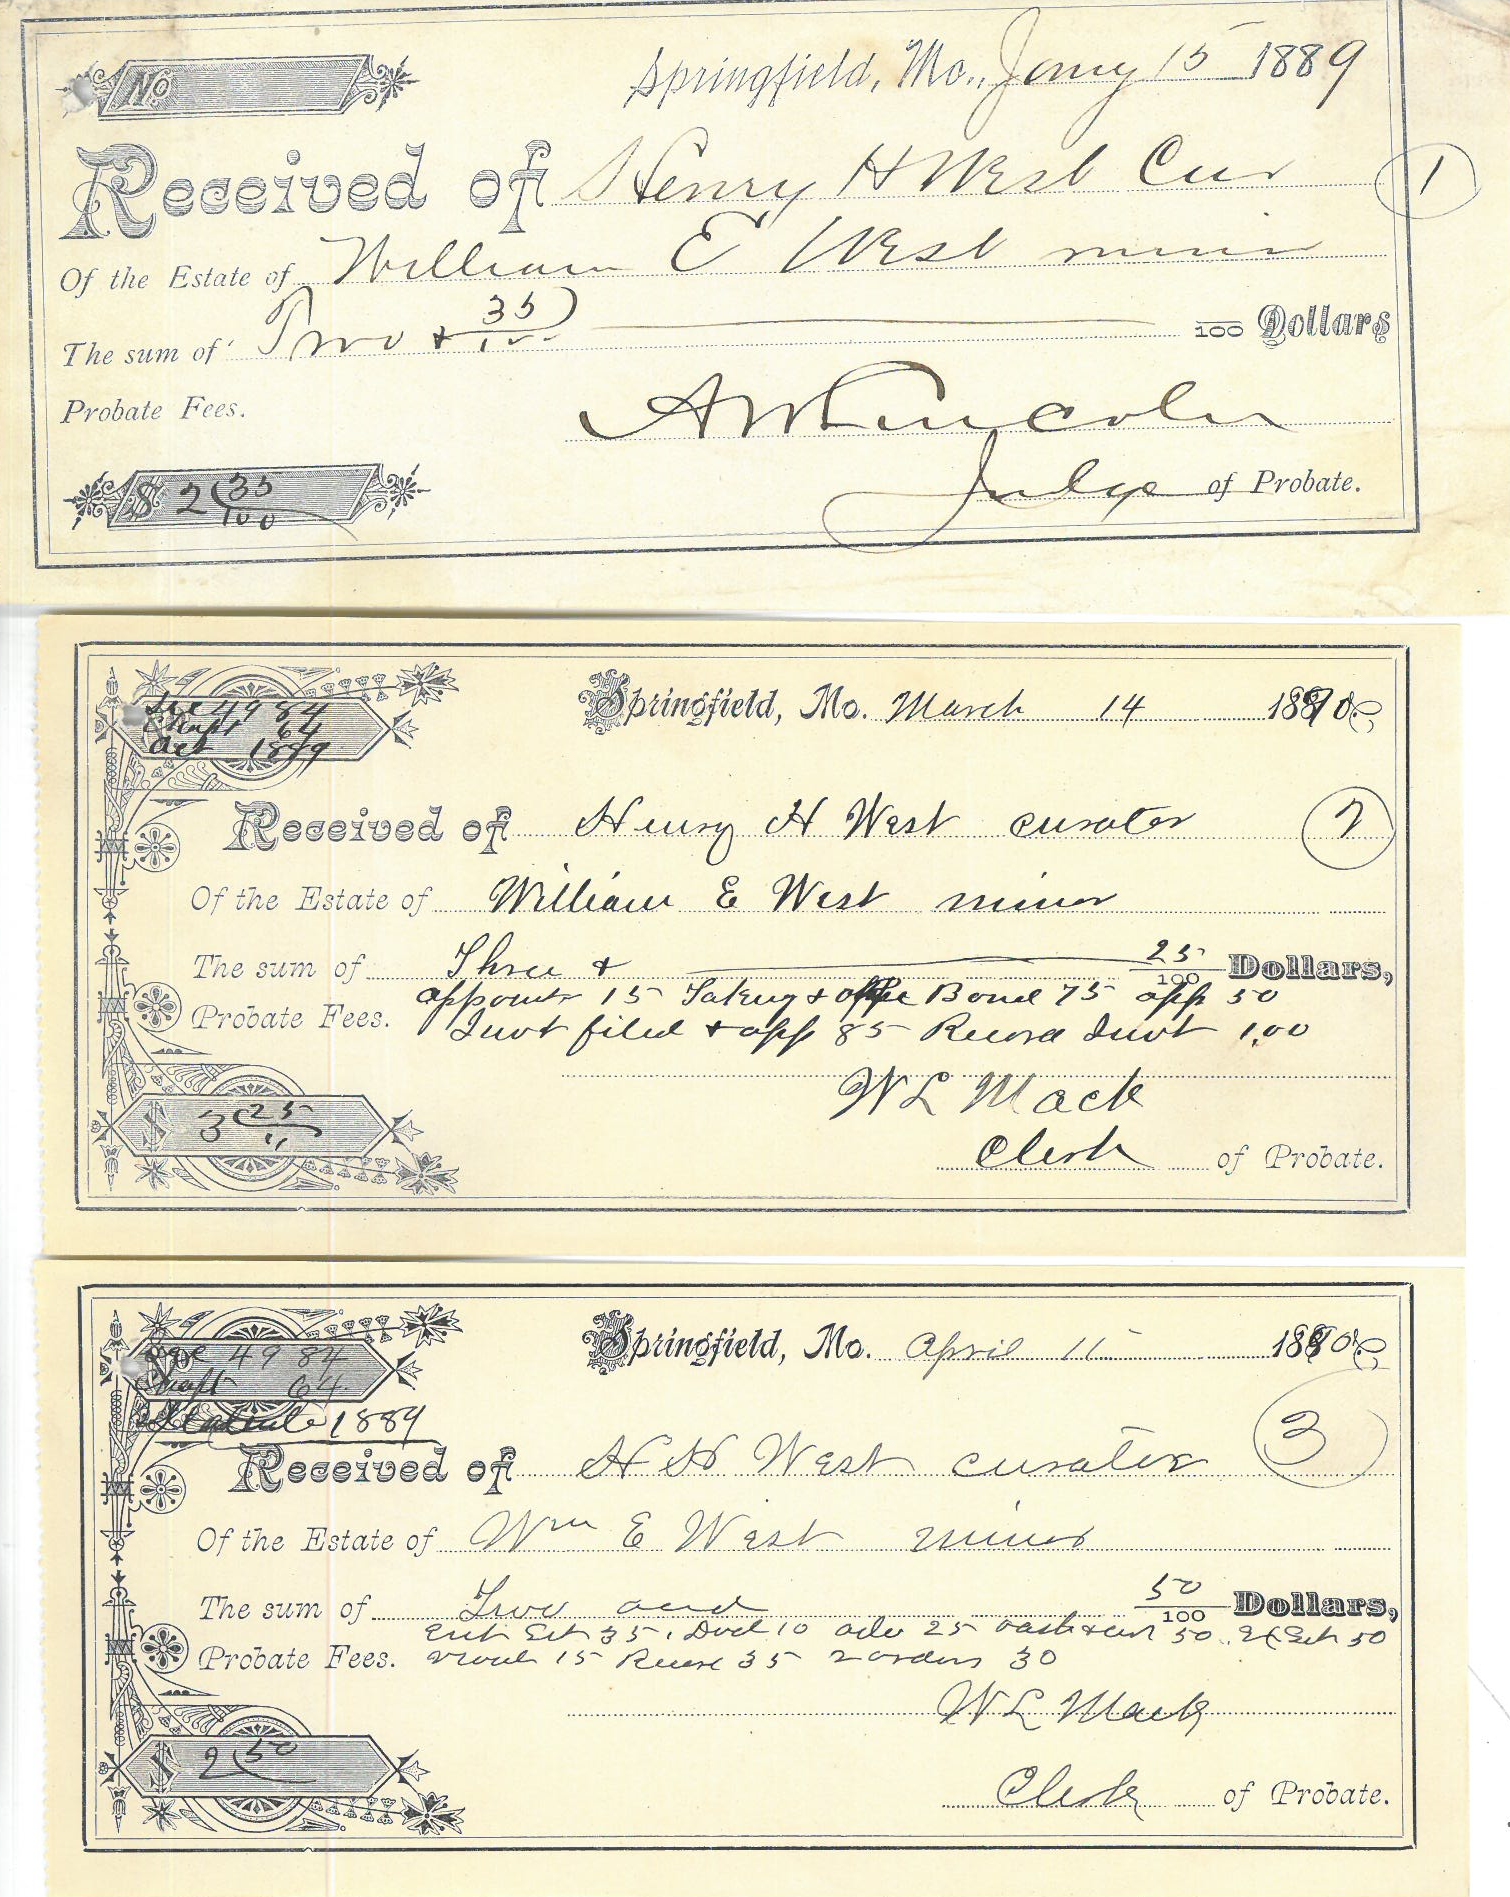 No.
Springfield, Mo., Jany 15 1889
Received of Henry H West Cur
1
Of the Estate of William E West minor
The sum of Two & 35/100 /100 Dollars
Probate Fees.
A W Lincoln
$ 2 35/100
Judge of Probate.
Sec 4984
Chapt 64
Act 1889
Springfield, Mo. March 14 1890
Received of Henry H West curator
2
Of the Estate of William E West minor
The sum of Three & 25/100 Dollars,
appointr 15 Taking & appr Bond 75 app 50
Probate Fees. Invt filed & app 85 Record Invt 1.00
W L Mack
$ 3 25/"
Clerk of Probate.
Sec 4984
Chapt 64
Statute 1889
Springfield, Mo. April 11 1890
Received of H H West curator
3
Of the Estate of Wm E West minor
The sum of Two and 50/100 Dollars,
Sett 35, 10 25 50 Sett 50
Probate Fees. 15 35 2 orders 30
W L Mack
$ 2 50
Clerk of Probate.